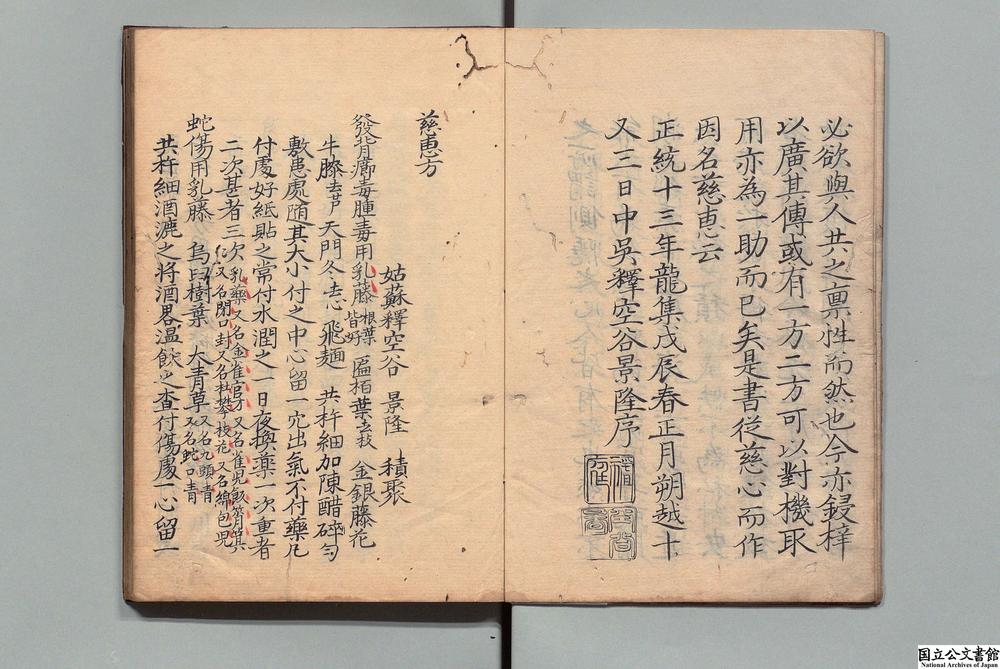 必欲與人共之稟性而然也今亦鋟梓
以廣其傳或有一方二方可以對機取
用亦為一助而已矣是書從慈心而作
因名慈恵云
正統十三年龍集戊辰春正月朔越十
又三日中吳釋空谷景隆序
慈恵方
姑蘇釋空谷 景隆 積聚
發背癤毒腫毒用乳藤根葉皆好 匾栢葉去枝 金銀藤花
牛膝去芦 天門冬去心 飛麺 共杵細加陳醋研勻
敷患處随其大小付之中心留一穴出氣不付藥凡
付處好紙貼之常付水潤之一日夜換藥一次重者
二次甚者三次乳藥又名金雀官才又名雀児飯筲箕
仁又名閉口封又名杜攀枝花又名綿包児
蛇傷用乳藤 烏臼樹葉 大青草又名九頭青又名蛇口青
共杵細酒漉之将酒畧温飲之查付傷處一心留一
国立公文書館
National Archives of Japan